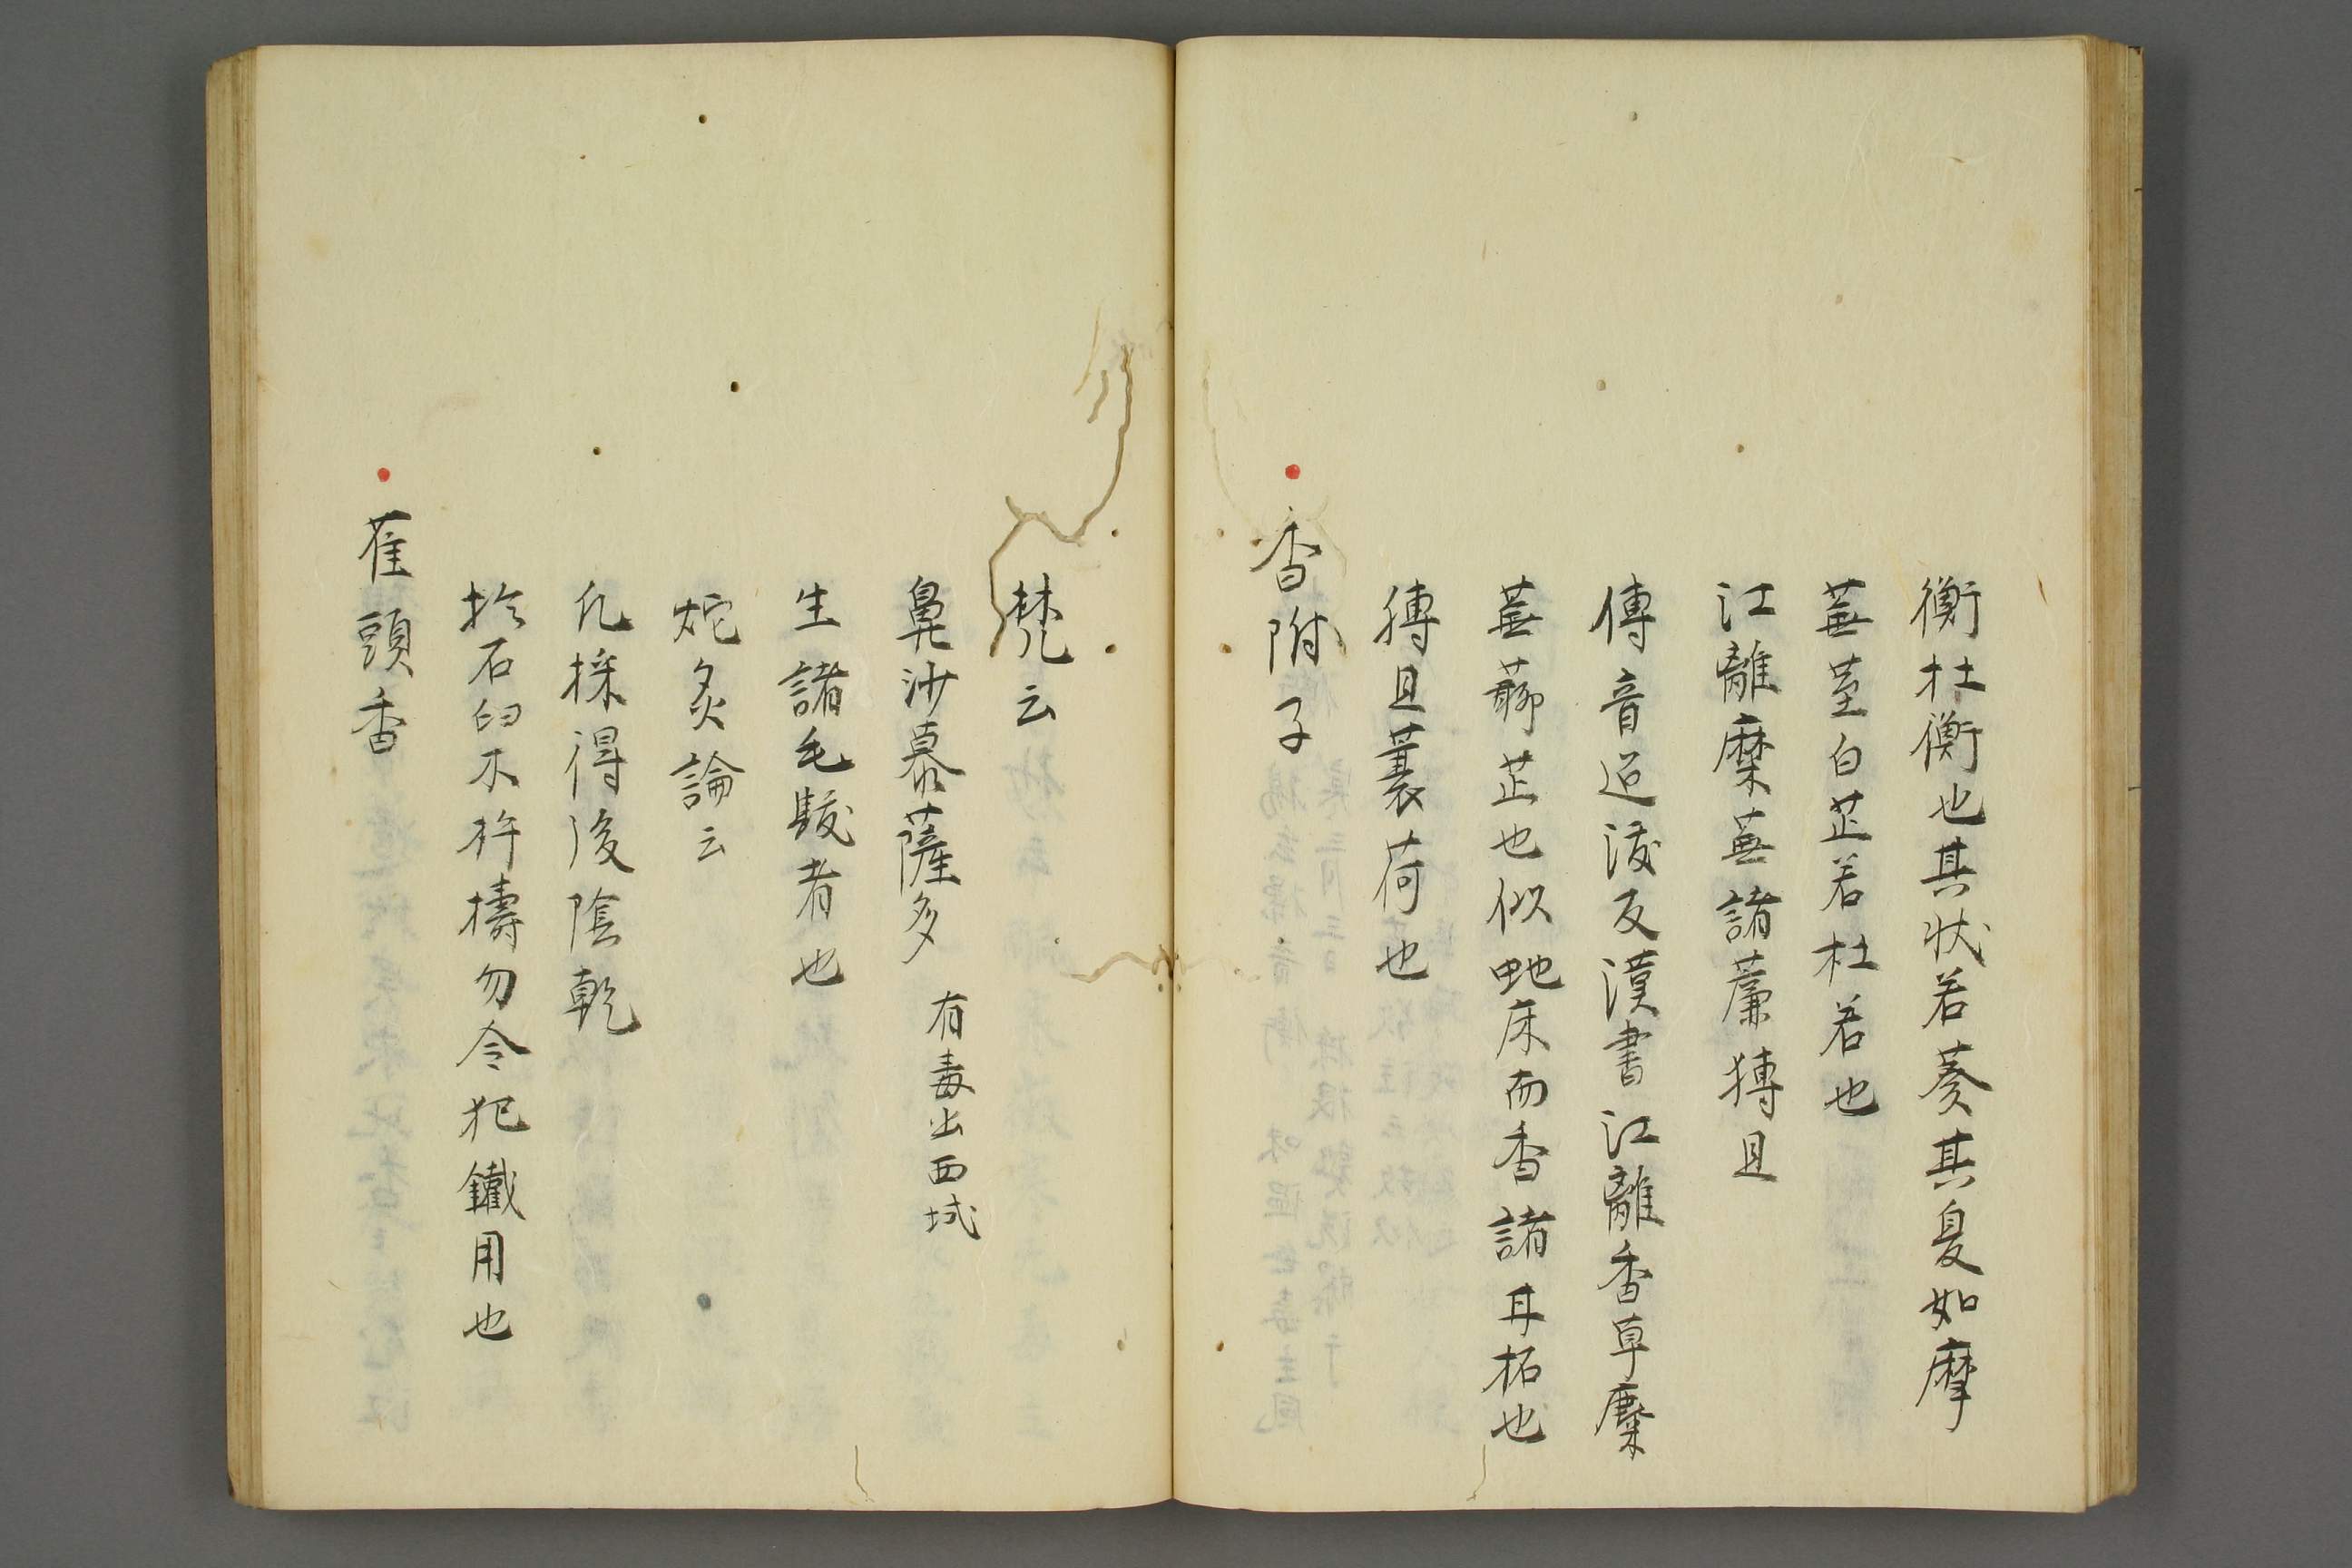 衡杜衡也其状若葵其臭如摩
蕪茎白芷若杜若也
江離麋蕪諸蔗猼且
傅音迢渡反漢書江離香草麋
蕪蘄芷也似虵床而香諸耳柘也
猼且蘘荷也
香附子
梵云
鼻沙慕薩多 有毒出西域
生諸毛髮者也
炮炙論云
凡採得後陰乾
於石臼木杵擣勿令犯鐵用也
萑頭香